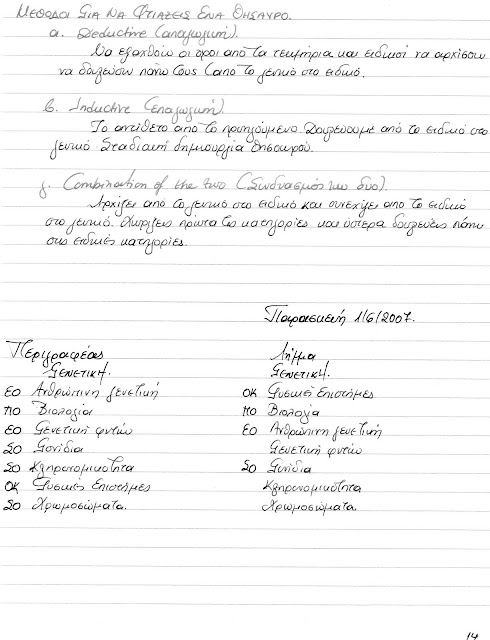 ΜΕΘΟΔΟΙ ΓΙΑ ΝΑ ΦΤΙΑΞΕΙΣ ΕΝΑ ΘΗΣΑΥΡΟ.
α. Deductive (απαγωγική).
Να εξαχθούν οι όροι από τα τεκμήρια και ειδικοί να αρχίσουν
να δουλεύουν πάνω τους (από το γενικό στο ειδικό.
β. Inductive (επαγωγική).
Το αντίθετο από το προηγούμενο. Δουλεύουμε από το ειδικό στο
γενικό. Σταδιακή δημιουργία θησαυρού.
γ. Combination of the two (Συνδυασμός των δύο).
Αρχίζει από το γενικό στο ειδικό και συνεχίζει από το ειδικό
στο γενικό. Χωρίζεις πρώτα τις κατηγορίες και ύστερα δουλεύεις πάνω
στις ειδικές κατηγορίες.
Παρασκευή 1/6/2007.
Περιγραφέας Λήμμα
ΓΕΝΕΤΙΚΗ. ΓΕΝΕΤΙΚΗ.
ΕΟ Ανθρώπινη γενετική ΟΚ Φυσικές Επιστήμες
ΠΟ Βιολογία ΠΟ Βιολογία
ΕΟ Γενετική φυτών ΕΟ Ανθρώπινη γενετική
ΣΟ Γονίδια Γενετική φυτών
ΣΟ Κληρονομικότητα ΣΟ Γονίδια
ΟΚ Φυσικές Επιστήμες Κληρονομικότητα
ΣΟ Χρωμοσώματα. Χρωμοσώματα.
14